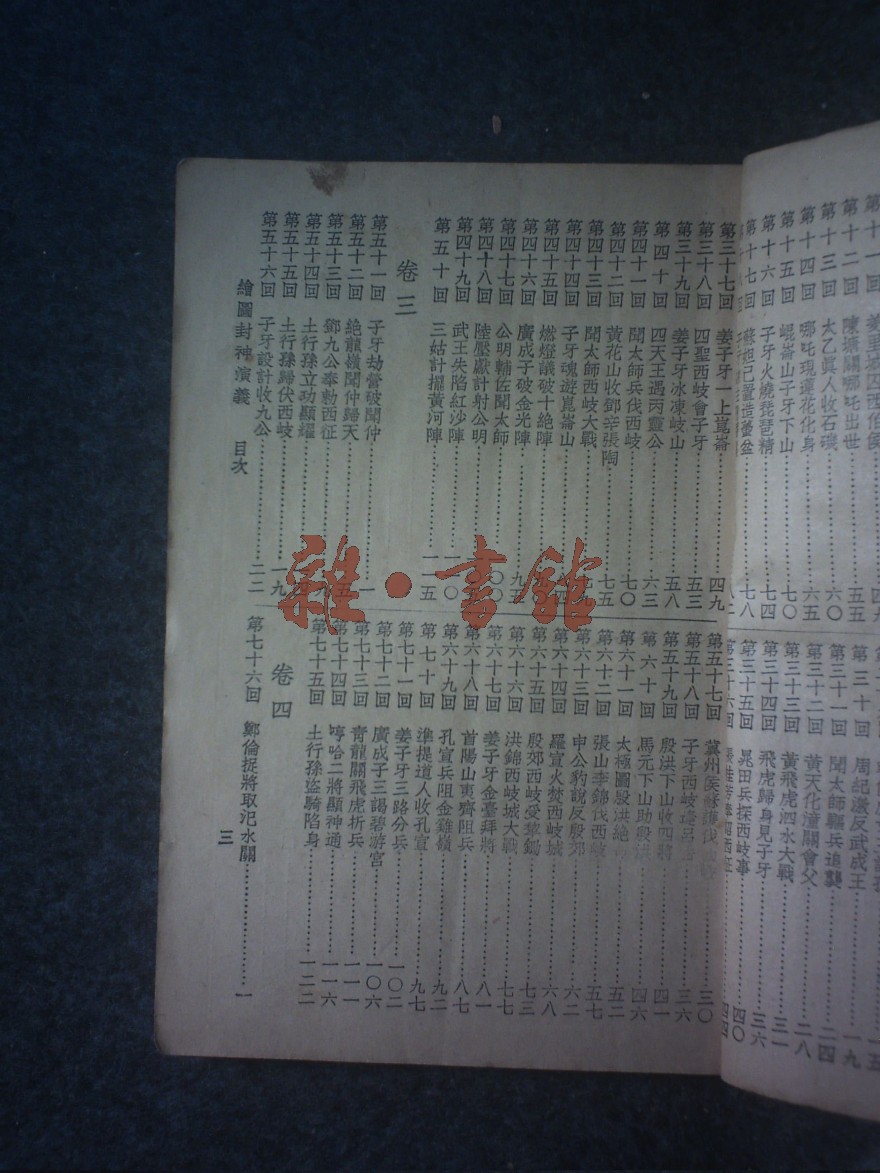 第十一回 羑里城囚西伯侯 四九
第十二回 陳塘關哪吒出世 五五
第十三回 太乙眞人收石磯 六〇
第十四回 哪吒現蓮花化身 六五
第十五回 崐崙山子牙下山 七〇
第十六回 子牙火燒琵琶精 七四
第十七回 蘇妲己置造蠆盆 七八
八二
第三十回 周紀激反武成王 一九
第三十一回 聞太師驅兵追襲 二四
第三十二回 黃天化潼關會父 二八
第三十三回 黃飛虎泗水大戰 三一
第三十四回 飛虎歸身見子牙 三六
第三十五回 晁田兵探西岐事 四〇
第三十六回 張桂芳奉詔西征 四四
第三十七回 姜子牙一上崑崙 四九
第三十八回 四聖西岐會子牙 五三
第三十九回 姜子牙冰凍岐山 五八
第四十回 四天王遇丙靈公 六三
第四十一回 聞太師兵伐西岐 七〇
第四十二回 黃花山收鄧辛張陶 七五
第四十三回 聞太師西岐大戰
第四十四回 子牙魂遊崑崙山
第四十五回 燃燈議破十絶陣
第四十六回 廣成子破金光陣 九五
第四十七回 公明輔佐聞太師
第四十八回 陸壓獻計射公明
第四十九回 武王失陷紅沙陣
第五十回 三姑計擺黃河陣 一一五
卷三
第五十一回 子牙劫營破聞仲 一
第五十二回 絶龍嶺聞仲歸天 五
第五十三回 鄧九公奉勅西征
第五十四回 土行孫立功顯耀
第五十五回 土行孫歸伏西岐 一九
第五十六回 子牙設計收九公 二三
第五十七回 冀州侯蘇護伐 三〇
第五十八回 子牙西岐逢呂 三六
第五十九回 殷洪下山收四將 四一
第六十回 馬元下山助殷洪 四六
第六十一回 太極圖殷洪絶 五二
第六十二回 張山李錦伐西岐 五七
第六十三回 申公豹說反殷郊 六二
第六十四回 羅宣火焚西岐城 六八
第六十五回 殷郊西岐受犂鋤 七三
第六十六回 洪錦西岐城大戰 七七
第六十七回 姜子牙金臺拜將 八一
第六十八回 首陽山夷齊阻兵 八七
第六十九回 孔宣兵阻金雞嶺 九二
第七十回 準提道人收孔宣 九七
第七十一回 姜子牙三路分兵 一〇二
第七十二回 廣成子三謁碧游宮 一〇六
第七十三回 青龍關飛虎折兵 一一一
第七十四回 哼哈二將顯神通 一一六
第七十五回 土行孫盜騎陷身 一二二
卷四
第七十六回 鄭倫捉將取汜水關 一
繪圖封神演義 目次
三
雜·書館